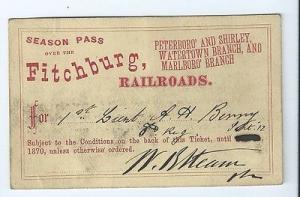 SEASON PASS
OVER THE
Fitchburg,
PETERBORO' AND SHIRLEY,
WATERTOWN BRANCH, AND
MARLBORO' BRANCH
RAILROADS.
For 1st Lieut. A. H.
Subject to the Conditions on the back of this Ticket, until
1870, unless otherwise ordered.